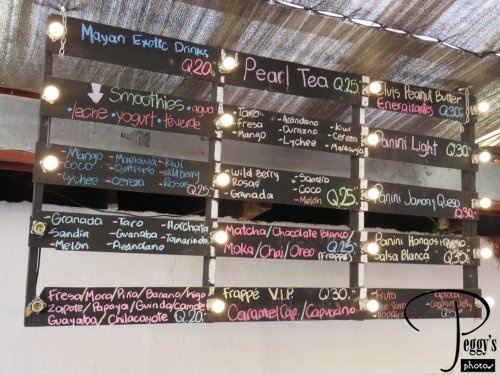 Mayan Exotic Drinks
Q.20.
Smoothies • agua
• leche • yogurt • té verde
- Mango - Maracuya - Kiwi
Coco - Durazno - Wild Berry
- Lychee - Cereza - Rosas
Q.25
- Granada - Taro - Horchata
Sandía - Guanaba - Tamarindo
- Melón - Arandano
Fresa/Mora/Piña/Banano/Higo
Zapote/Papaya/Guinda/
Guayaba/Chilacayote Q.20.
Pearl Tea Q.25
- Taro - Arándano - Kiwi
- Fresa - Durazno - Cereza
- Mango - Lychee - Maracuya
- Wild Berry - Sandía
- Rosas - Coco
- Granada - Melón
Q.25
Matcha/Chocolate Blanco/
Moka/Chai/Oreo Q.25
(Frappé)
Frappé V.I.P. Q.30.
Caramel Cap./Capuccino
Elvis Peanut Butter
Energizantes Q.30
Panini Light Q.30
Panini Jamon y Queso
Q.30
Panini Hongos + Queso
Salsa Blanca Q.35
Fruta
Tapioca
Peggy's
photos